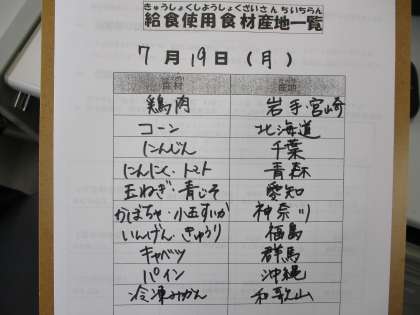 きゅうしょくしようしょくざいさんちいちらん
給食使用食材産地一覧
7月19日(月)
食材 産地
鶏肉 岩手・宮崎
コーン 北海道
にんじん 千葉
にんにく・トマト 青森
玉ねぎ・青じそ 愛知
かぼちゃ・小玉すいか 神奈川
いんげん・きゅうり 福島
キャベツ 群馬
パイン 沖縄
冷凍みかん 和歌山